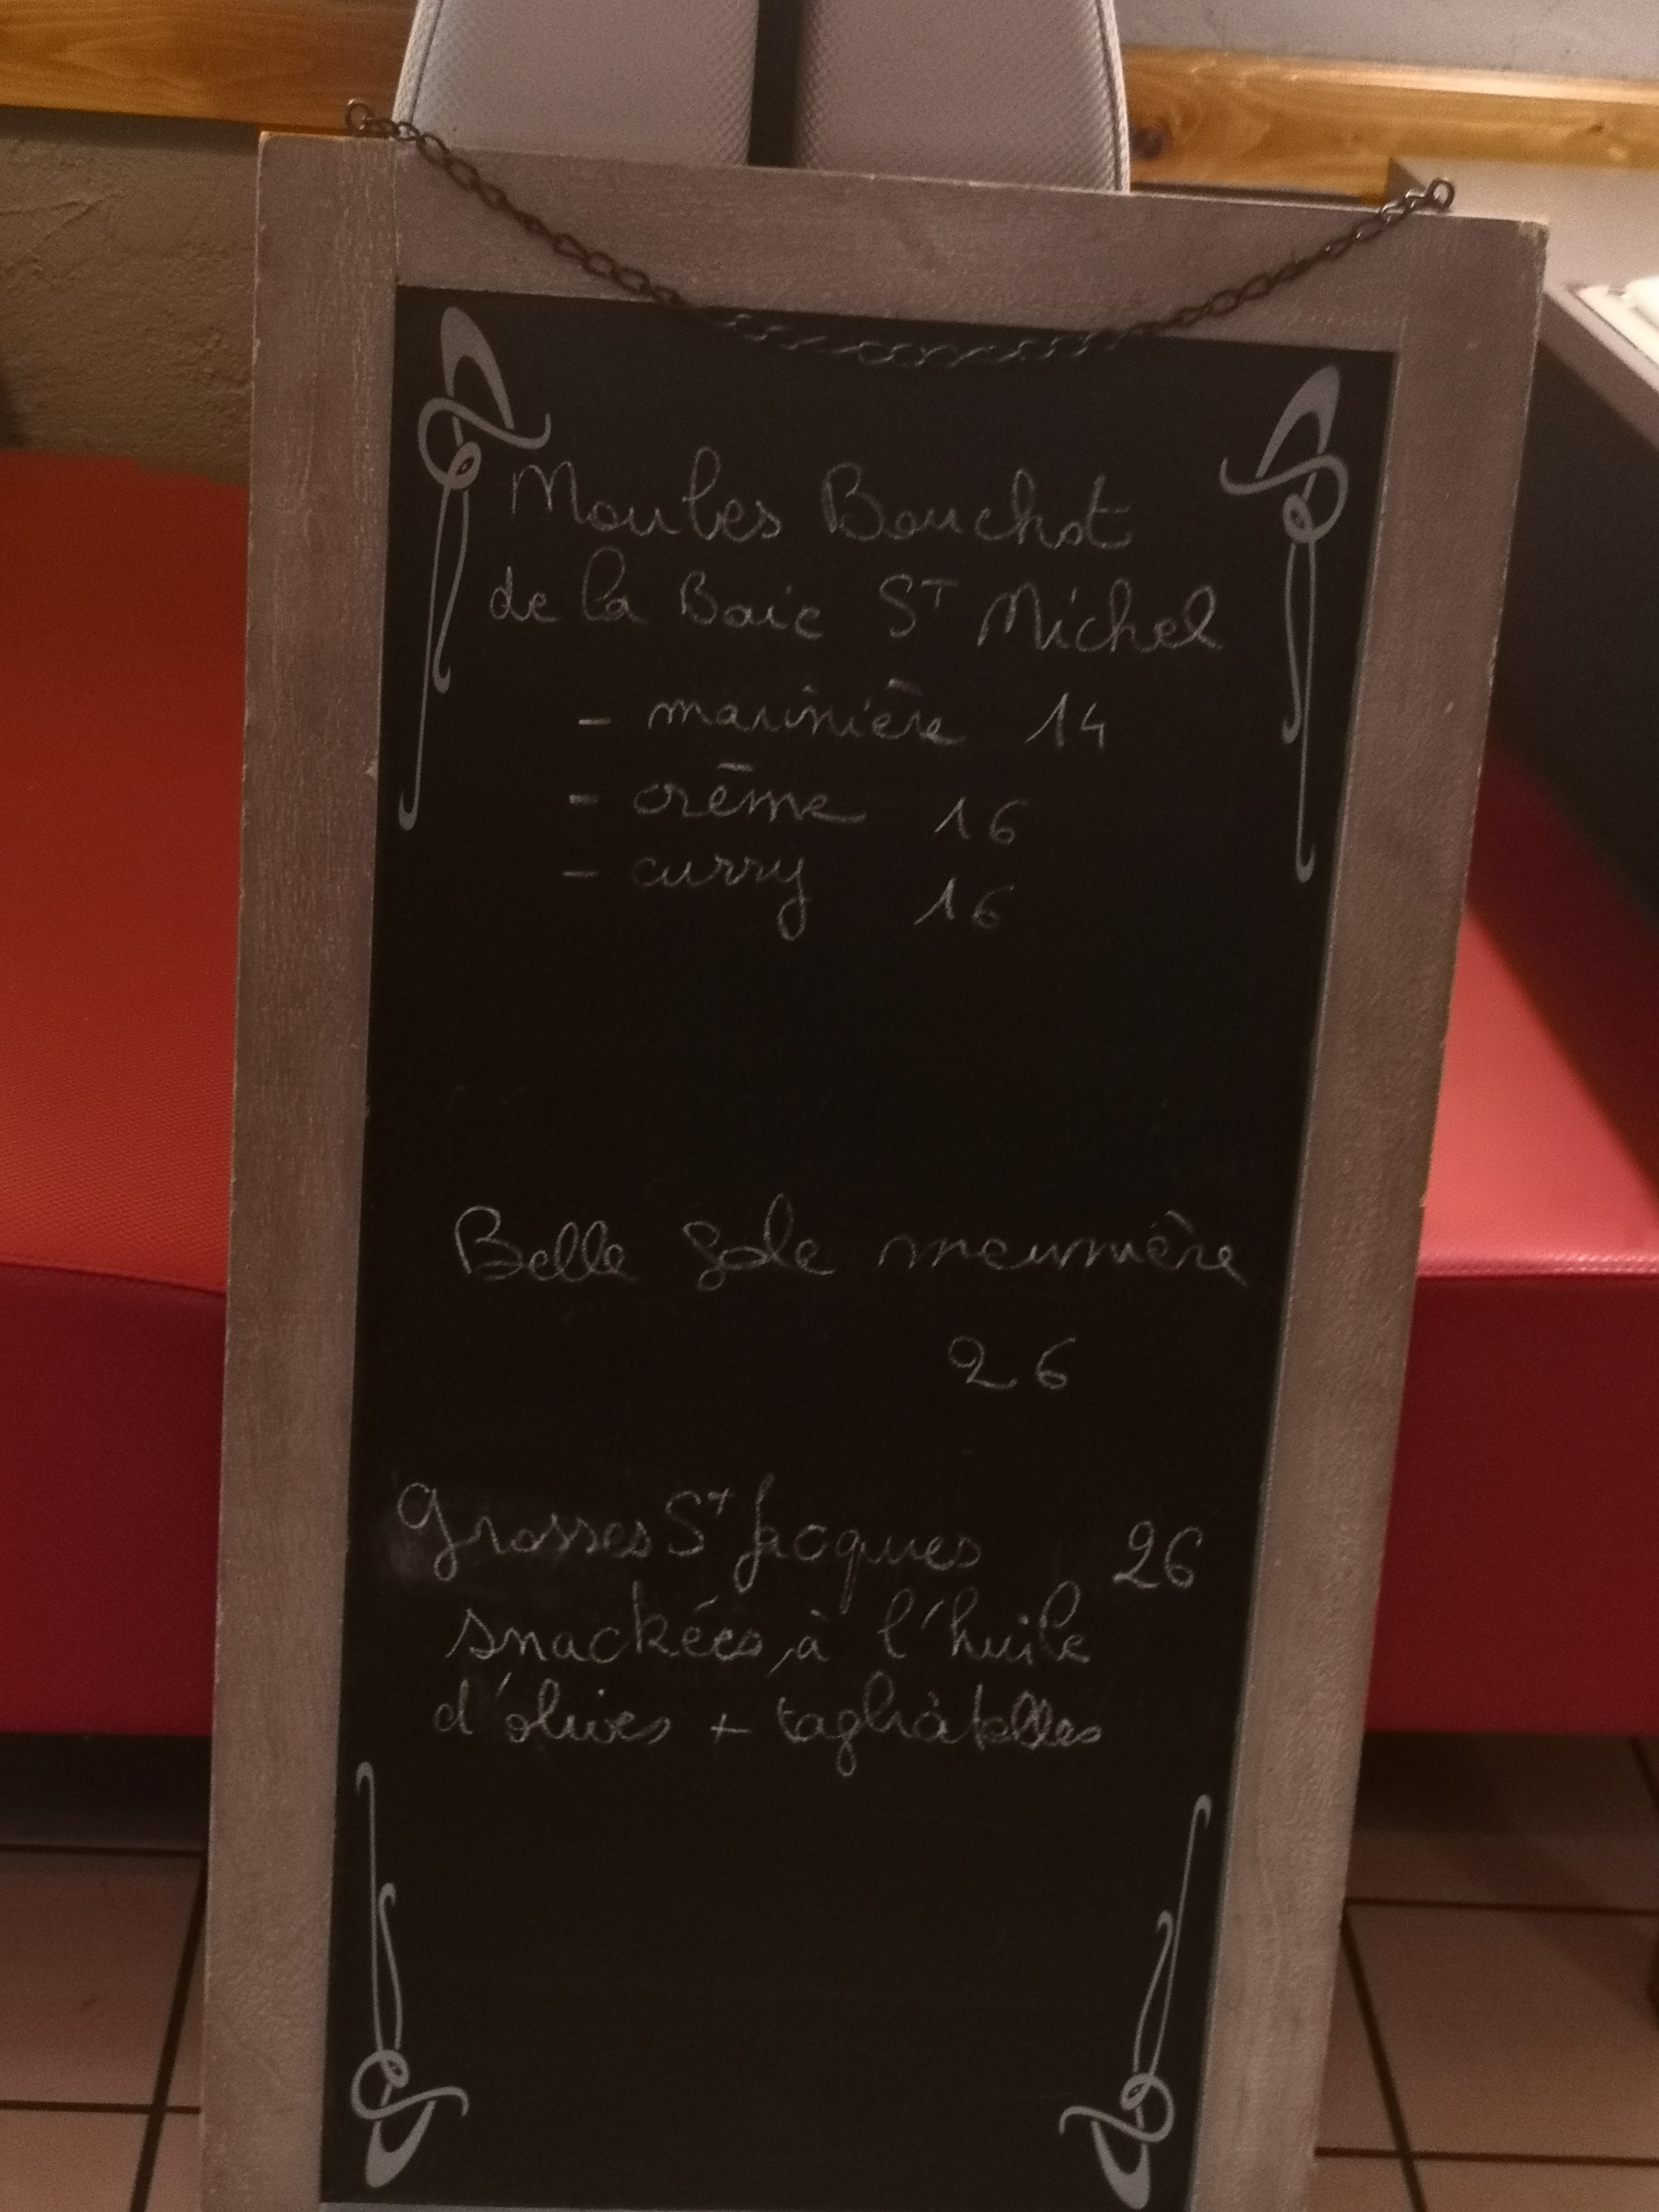 Moules Bouchot
de la Baie St Michel
- marinière 14
- crème 16
- curry 16
Belle Sole meunière
26
grosses St Jacques 26
snackées à l'huile
d'olives + tagliatelles